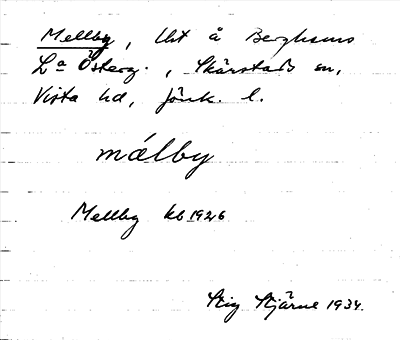 Mellby, Uht å Berghems
La Österg., Skärstads sn,
Vista hd, Jönk. l.
mälby
Mellby kb 1926
Stig Stjärne 1934.